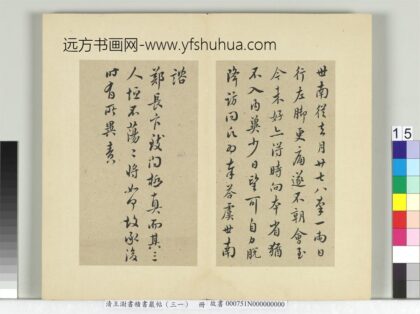 远方书画网-www.yfshuhua.com
世南從去月廿七八率一兩日
行左脚更痛遂不朝會至
今未好亦得時向本省猶
不入內冀少日望可自力脫
降訪問氏為奉答虞世南
諮
鄭長官致問極真而其三
人恒不蕩蕩將如何故承後
時有所異責
15
清王澍書積書巖帖(三一) 冊 故書 000751N000000000